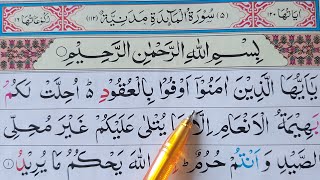 اٰيَاتُهَا ١٢٠ (٥) سُوْرَةُ الْمَآئِدَةِ مَدَنِيَّةٌ (١١٢) رُكُوْعَاتُهَا ١٦
بِسْمِ اللّٰهِ الرَّحْمٰنِ الرَّحِيْمِ
يٰٓاَيُّهَا الَّذِيْنَ اٰمَنُوْٓا اَوْفُوْا بِالْعُقُوْدِ ؕ اُحِلَّتْ لَكُمْ
بَهِيْمَةُ الْاَنْعَامِ اِلَّا يُتْلٰى عَلَيْكُمْ غَيْرَ مُحِلِّى
الصَّيْدِ وَ اَنْتُمْ حُرُمٌ ؕ اللّٰهَ يَحْكُمُ مَا يُرِيْدُ ١